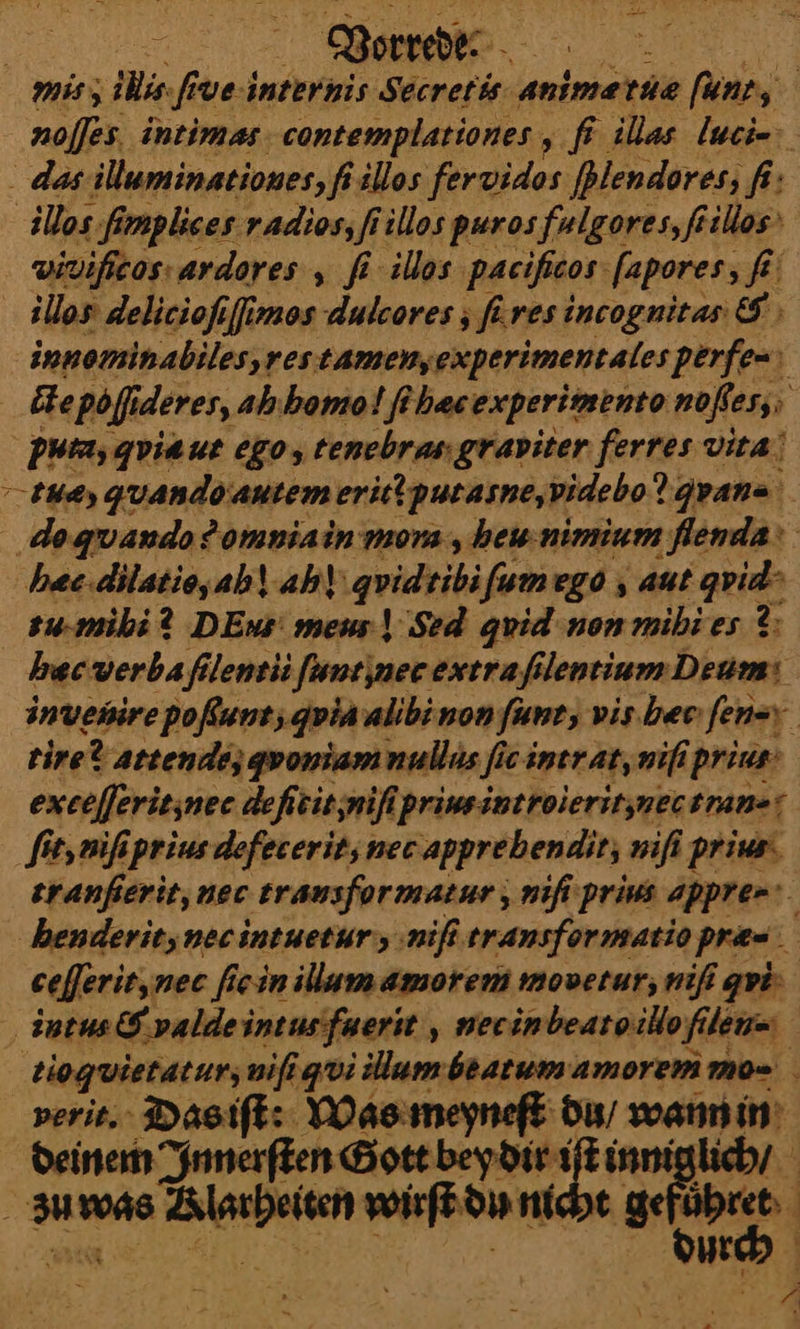 Vorrede.
mis, illis ſive internis Secretis animæ tuæ ſunt,
noſſes intimas contemplationes, ſi illas luci-
das illuminationes, ſi illos fervidos ſplendores, ſi
illos ſimplices radios, ſi illos puros fulgores, ſi illos
vivificos ardores, ſi illos pacificos ſapores, ſi
illos delicioſiſſimos dulcores; ſi res incognitas &
innominabiles, res tamen, experimentales perfe-
cte poſſideres, ah homo! ſi hæc experimento noſſes,
puta, qvia ut ego, tenebras graviter ferres vitæ
tuæ, qvando autem erit? putasne, videbo? qvan-
do qvando? omnia in mora, heu nimium flenda
hæc dilatio, ah! ah! qvid tibi ſum ego, aut qvid
tu mihi? DEus meus! Sed qvid non mihi es?
hæc verba ſilentii ſunt, nec extra ſilentium Deum
invenire poſſunt, qvia alibi non ſunt, vis hæc ſen-
tire? attende, qvoniam nullus ſic intrat, niſi prius
exceſſerit, nec deficit, niſi prius introierit, nec tran-
ſit, niſi prius defecerit, nec apprehendit, niſi prius
tranſierit, nec transformatur, niſi prius appre-
henderit, nec intuetur, niſi transformatio præ-
ceſſerit, nec ſic in illum amorem movetur, niſi qvi
intus & valde intus fuerit, nec in beato illo ſilen-
tio qvietatur, niſi qvi illum beatum amorem mo-
verit. Das iſt: Was meyneſt du/ wann in
deinem Innerſten Gott bey dir iſt inniglich/
zu was Klarheiten wirſt du nicht geführet
durch